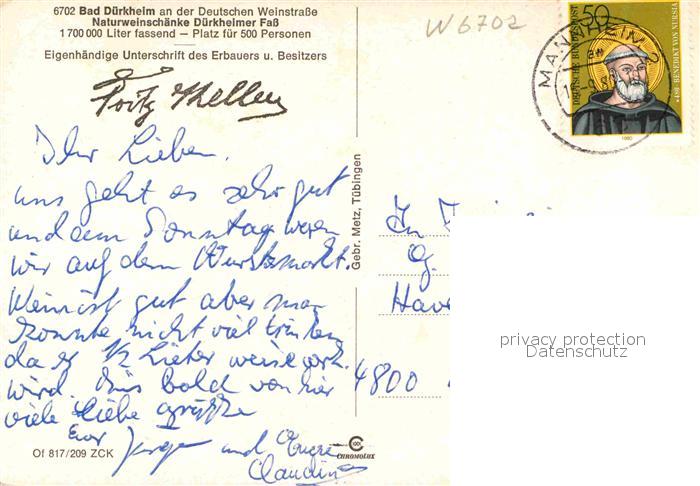 6702 Bad Dürkheim an der Deutschen Weinstraße
Naturweinschänke Dürkheimer Faß
1 700 000 Liter fassend — Platz für 500 Personen
Eigenhändige Unterschrift des Erbauers u. Besitzers
Fritz Keller
Ihr Lieben,
uns geht es sehr gut
und am Sonntag waren
wir auf dem Wurstmarkt.
Wein ist gut aber man
konnte nicht viel trinken
da es 1/2 Lieter weise verk.
wird. Bis bald von hier
viele Liebe grüße
Euer Jürgen und Eure
Claudia
Of 817/209 ZCK
CHROMOLUX
Gebr. Metz, Tübingen
W6702
MANNHEIM 2
50
DEUTSCHE BUNDESPOST
*480 BENEDIKT VON NURSIA
1980
4800
privacy protection
Datenschutz